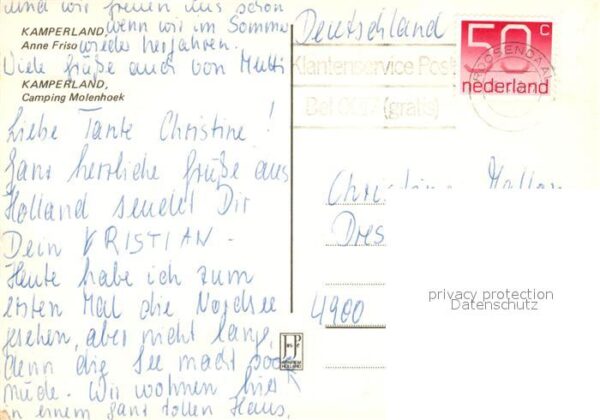 und wir freuen uns schon
wenn wir im Somme
wieder herfahren.
Viele Grüße auch von Mutti
KAMPERLAND,
Anne Friso
KAMPERLAND,
Camping Molenhoek
Liebe Tante Christine !
Ganz herzliche Grüße aus
Holland sendet Dir
Dein KRISTIAN.
Heute habe ich zum
ersten Mal die Nordsee
gesehen, aber nicht lange,
denn die See macht
müde. Wir wohnen hier
in einem ganz tollen Haus,
Deutschland
Klantenservice Post
Bel 0017 (gratis)
ROOSENDAAL
50 c
nederland
Dres
4900
privacy protection
Datenschutz